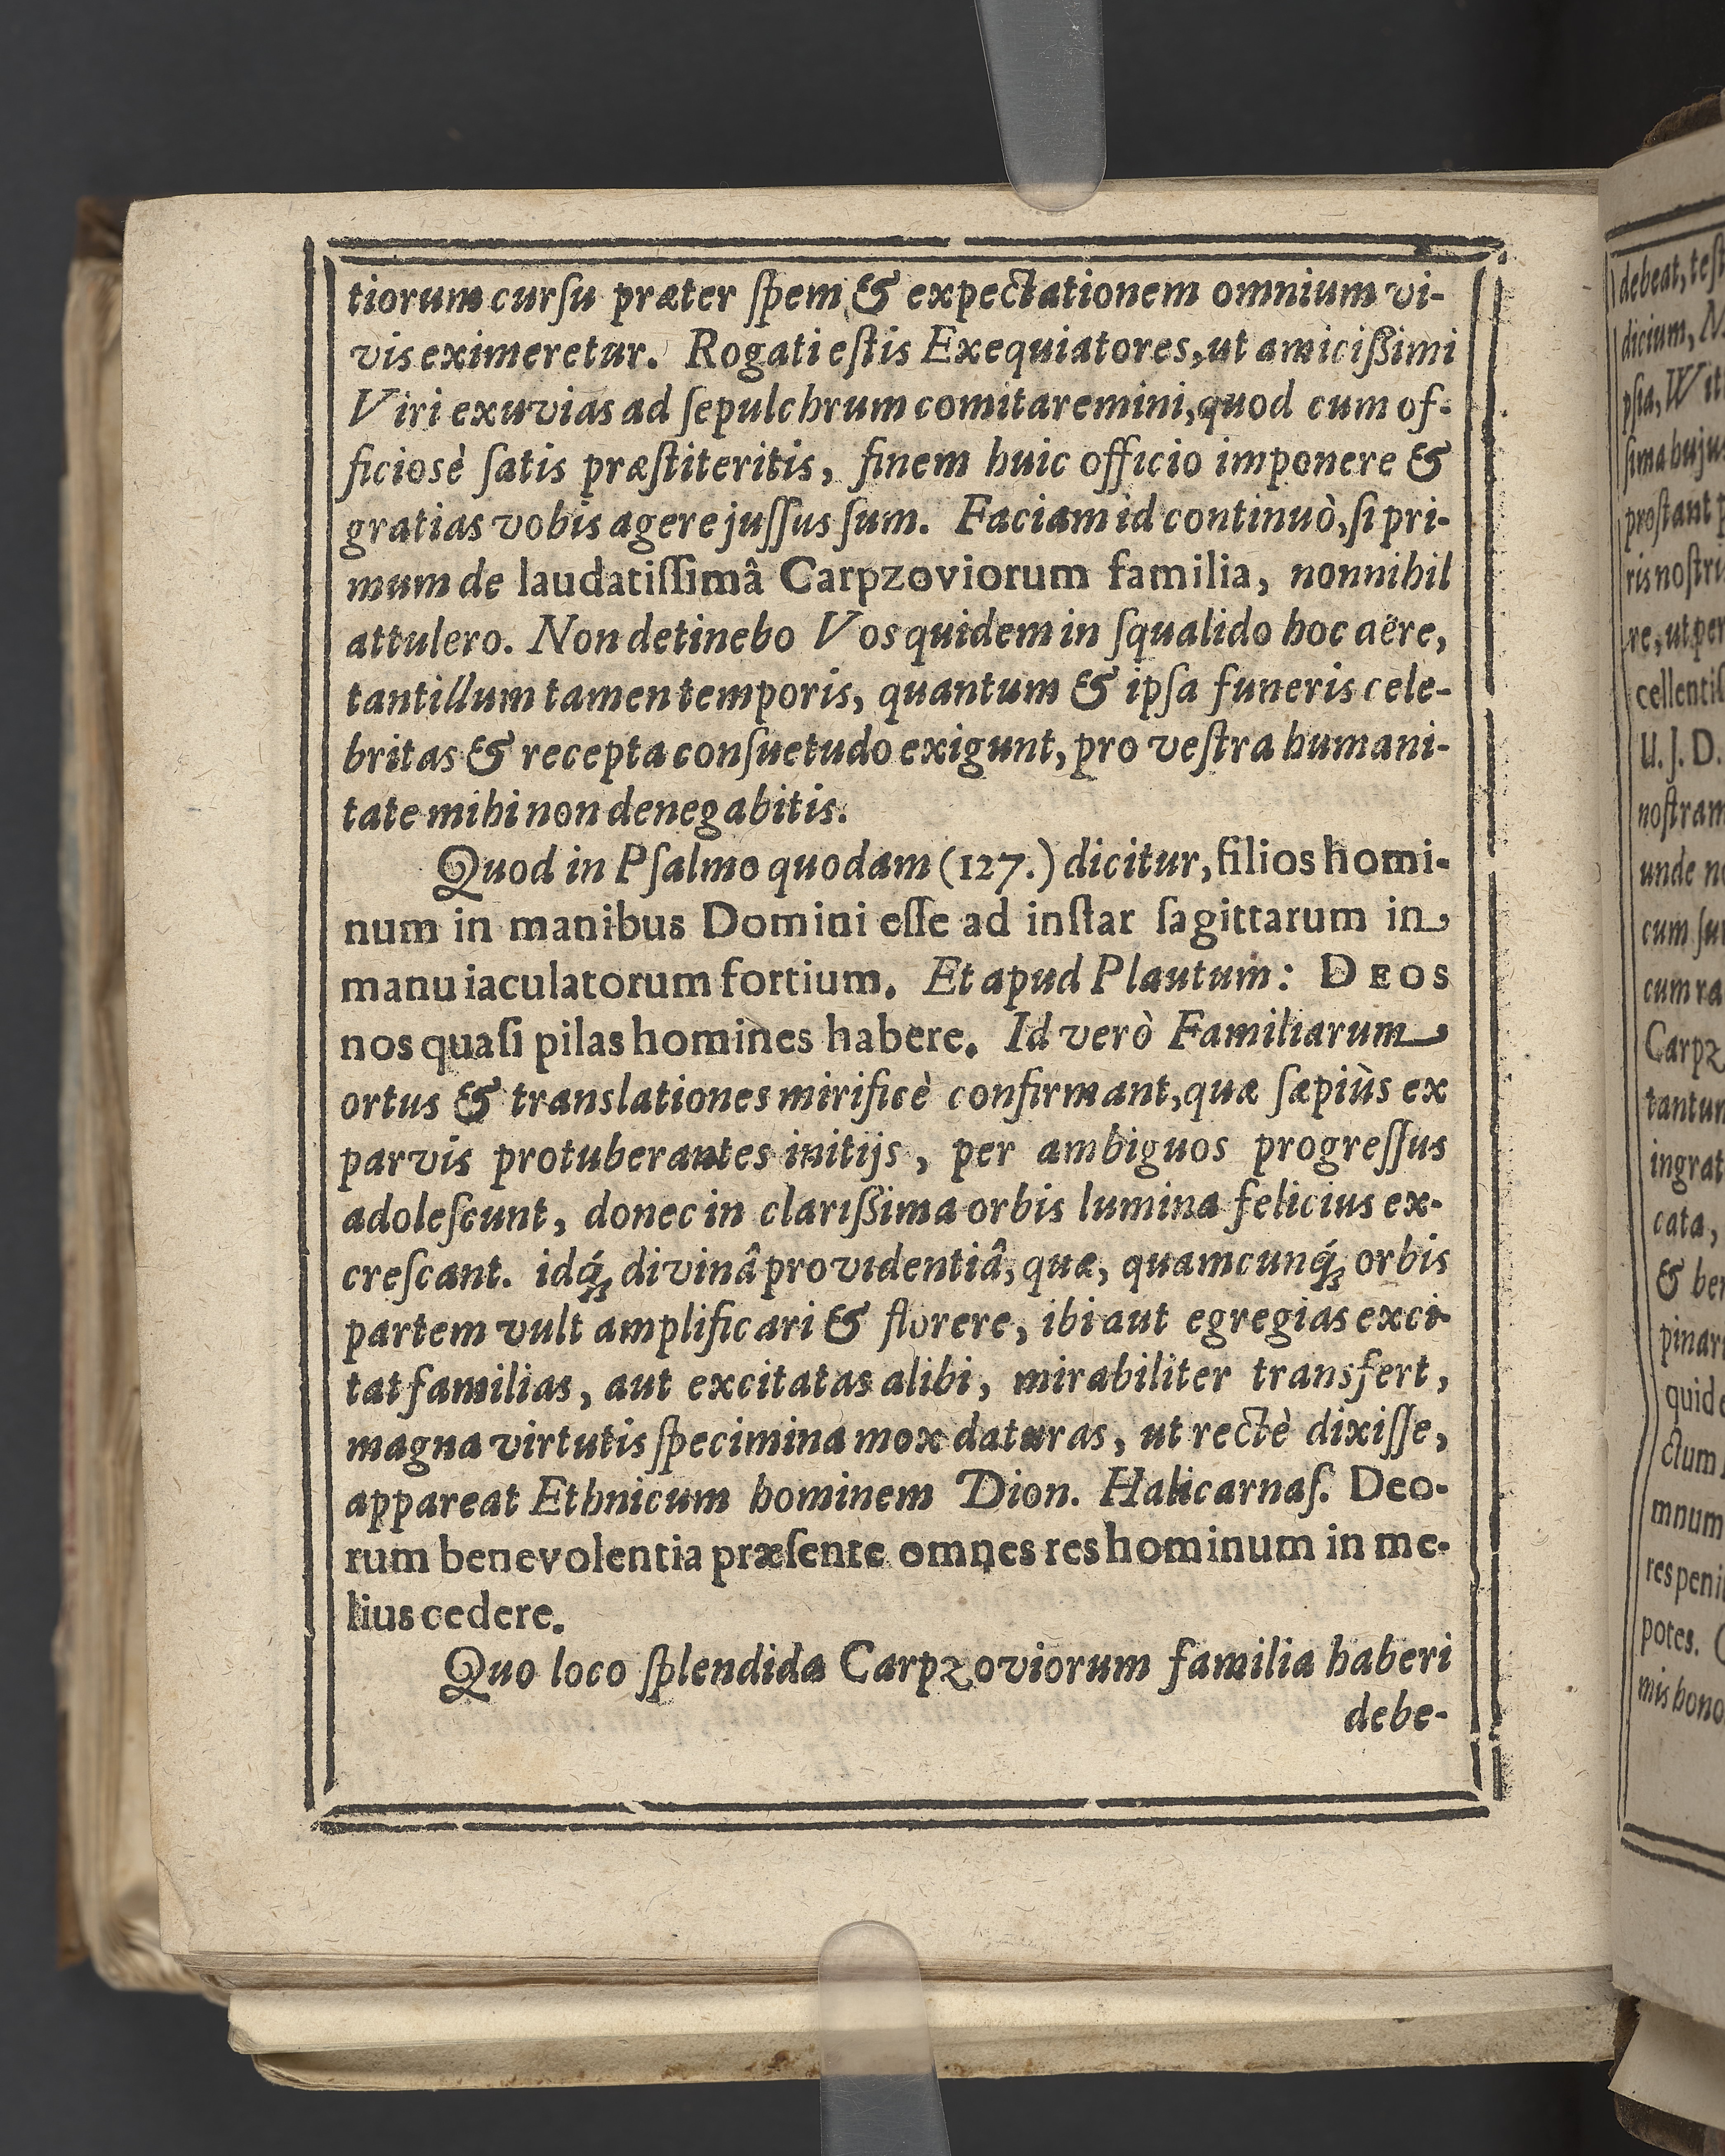 tiorum cursu præter spem & expectationem omnium vi-
vis eximeretur. Rogati estis Exequiatores, ut amicißimi
Viri exuvias ad sepulchrum comitaremini, quod cum of-
ficiosè satis præstiteritis, finem huic officio imponere &
gratias vobis agere jussus sum. Faciam id continuò, si pri-
mum de laudatissimâ Carpzoviorum familia, nonnihil
attulero. Non detinebo Vos quidem in squalido hoc aëre,
tantillum tamen temporis, quantum & ipsa funeris cele-
britas & recepta consuetudo exigunt, pro vestra humani-
tate mihi non denegabitis.
Quod in Psalmo quodam (127.) dicitur, filios homi-
num in manibus Domini esse ad instar sagittarum in
manu iaculatorum fortium. Et apud Plautum: DEOS
nos quasi pilas homines habere. Id verò Familiarum
ortus & translationes mirificè confirmant, quæ sæpiùs ex
parvis protuberantes initijs, per ambiguos progressus
adolescunt, donec in clarißima orbis lumina felicius ex-
crescant. idq́ꝫ divinâ providentiâ, quæ, quamcunq́ꝫ orbis
partem vult amplificari & florere, ibi aut egregias exci-
tat familias, aut excitatas alibi, mirabiliter transfert,
magna virtutis specimina mox daturas, ut rectè dixisse,
appareat Ethnicum hominem Dion. Halicarnas. Deo-
rum benevolentia præsente omnes res hominum in me-
lius cedere.
Quo loco splendida Carpzoviorum familia haberi
debe-
debeat, test
dicium, N
psia, Wit
sima hujus
prostant p
ris nostri
re, ut per
cellentis
U. J. D.
nostram
unde no
cum su
cum ra
Carpz
tantum
ingrat
cata,
& ber
pinar
quid
ctum
mnum
res peni
potes.
mis bono